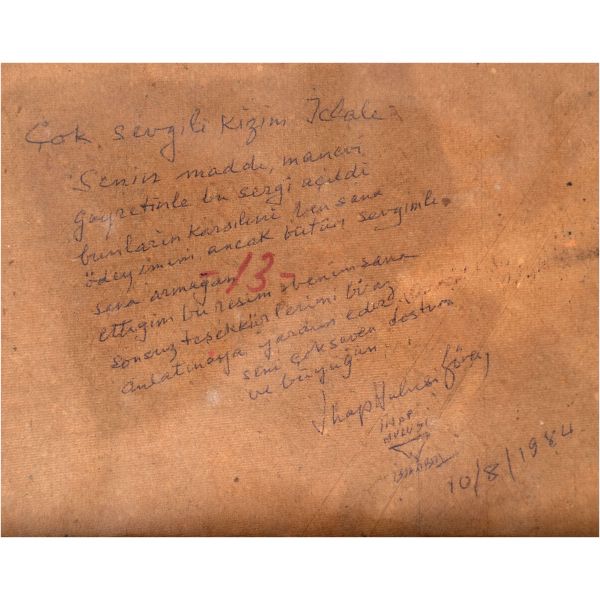 Çok sevgili kızım İclale
Senin madde, manevi
gayretinle bu sergi açıldı
bunların karşılıni ben sana
ödeyimimi ancak bütün sevgimle
sana armağan
-13-
ettiğim bu resim benim sana
sonsuz teşekkürlerimi biraz
anlatmaya yardım eder
seni çok seven dostun
ve büyüğün
İhap Hulusi Görey
İHAP
HULUSİ
İSTANBUL
10/8/1984